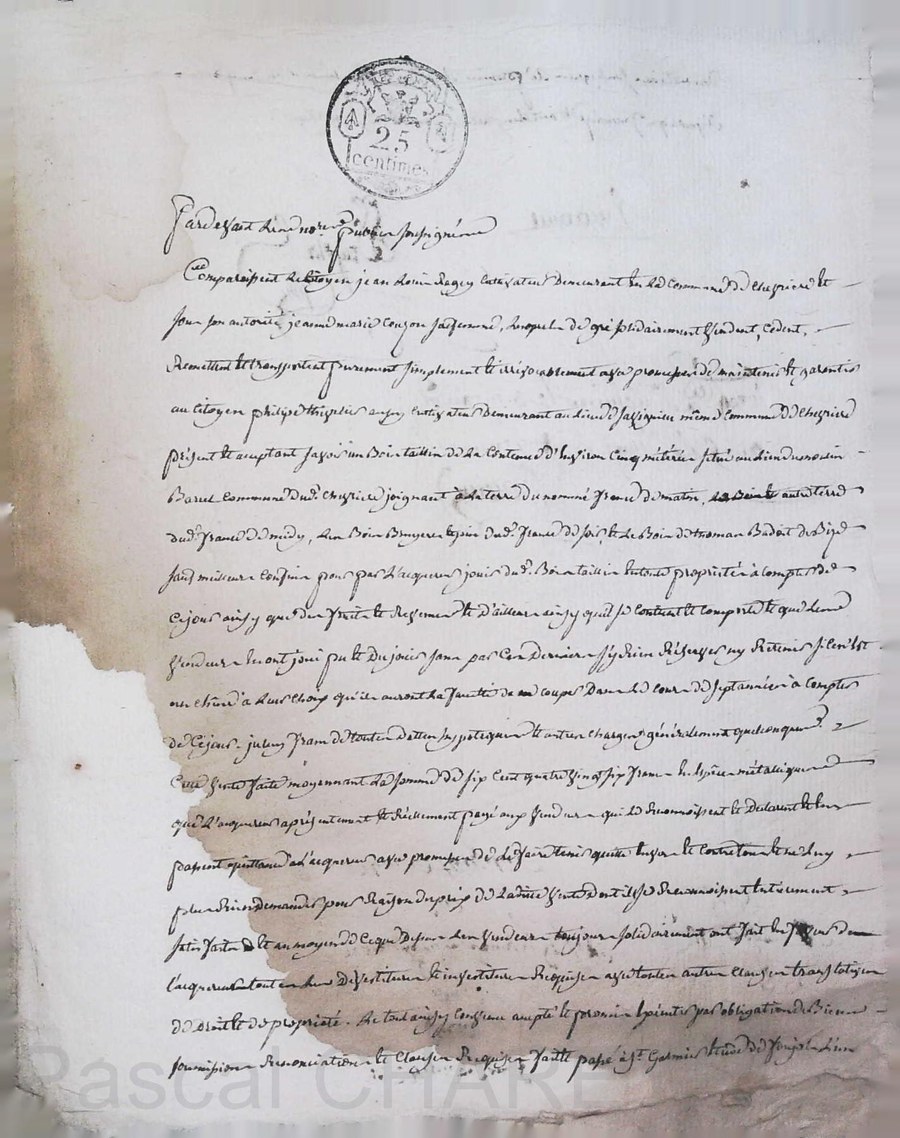 25
centimes
Pardevant les notres publics soussignés
Comparaissent le Citoyen jean Louis Ragey Cultivateur Demeurant en la Commune de Chevriere et
sous son autorité jeanne marie sa femme, lesquels de gré solidairement vendent, cedent,
Remettent et transportent purement simplement et irrévocablement avec promesse de maintenir et garantir
au Citoyen philipe Cultivateur Demeurant au lieu de même commune de Chevriere
présent et acceptant savoir un Bois taillis de la Contenue d'Environ Cinq situé au lieu
Commune dud. Chevriere joignant à la terre du nommé france de matin, autre terre
dud. france de midy, les Bois Bruyere et dud. france de soir, et le Bois de thomas Badoit de Bize
sauf meilleurs Confins pour par l'acquereur jouir dud. Bois taillis en toute propriété à compter de
Ce jour ainsy que des fruits et et d'ailleurs ainsy qu'il se contient et comporte et que les
vendeurs en ont joui pu et du jouir sans par Ces Derniers s'y Rien Réserver ny Retenir si Ce n'Est
un à leur Choix qu'ils auront la faculté de couper Dans le cours de sept années à compter
de Ce jour. franc de toutes dettes hypoteques et autres charges généralement quelconques.
Cette vente faite moyennant la somme de six Cent quatre vingt six francs en Espece métallique
que l'acquereur a présentement et Réellement payé aux vendeurs qui le Reconnoissent et Declarent et En
passent quittance a l'acquereur avec promesse de le faire tenir quitte Envers et Contre tous et ne luy
plus Rien Demander pour Raison du prix de ladite vente dont ils se Reconnoissent Entierement
satisfaits et au moyen de Ce que Dessus les vendeurs toujours solidairement ont fait En faveur de
l'acquereur toutes les Devestitures et investitures Requises avec toutes autres Clauses translatives
de Droit et de propriété. Le tout ainsy Convenu accepté et promis par obligation de Biens
soumissions Renonciations et Clauses Requises fait et passé à St Galmier Etude de l'un
Pascal CHARE